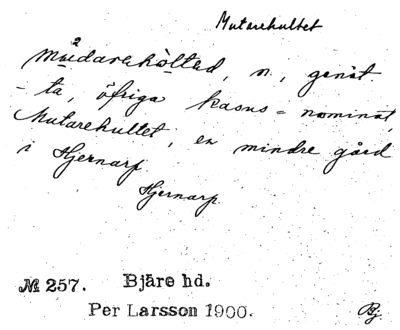 Mutarehultet
mu̇darehȯltad, n., genit
-ta, öfriga kasus = nominat,
Mutarehultet, en mindre gård
i Hjernarp
Hjernarp.
№ 257. Bjäre hd.
Per Larsson 1900.